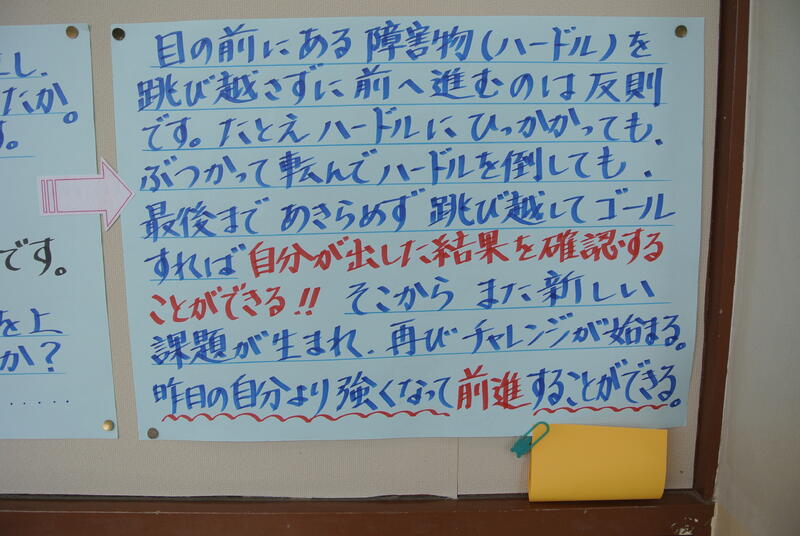 目の前にある障害物(ハードル)を
跳び越さずに前へ進むのは反則
です。たとえハードルにひっかかっても、
ぶつかって転んでハードルを倒しても、
最後まであきらめず跳び越してゴール
すれば自分が出した結果を確認する
ことができる!! そこからまた新しい
課題が生まれ、再びチャレンジが始まる。
昨日の自分より強くなって前進することができる。
し、
たか。
す。
です。
を上
か?
.....